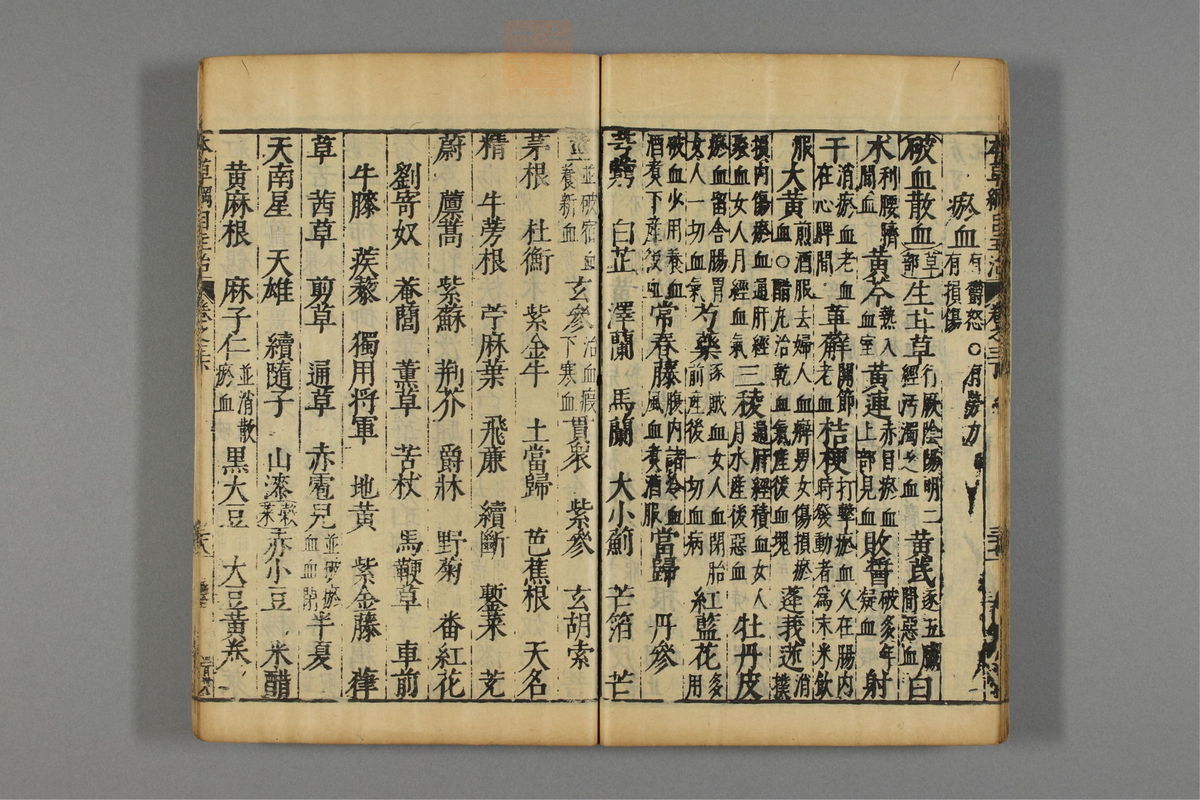 瘀血有鬱怒○有勞力有損傷
破血散血草部生甘草行厥陰陽明二經汚濁之血黃芪逐五臟間惡血白
水利腰臍間血黃芩熱入血室黃連赤目瘀血上部見血敗醬破多年凝血射
干消瘀血老血在心脾間萆薢關節老血桔梗打擊瘀血久在腸內時發動者爲末米飲
服大黃煎酒服去婦人血癖男女傷損瘀血○醋丸治乾血氣產後血塊蓬莪茂消撲
損內傷瘀血通肝經聚血女人月經血氣三稜通肝經積血女人月水產後惡血牡丹皮
瘀血留舍腸胃女人一切血氣芍藥逐賊血女人血閉胎前產後一切血病紅藍花多用
破血少用養血酒煮下產後血常春藤腹內諸冷血風血煮酒服當歸 丹參
芎藭 白芷 澤蘭 馬蘭 大小薊 芒箔 芒
莖並破宿血養新血玄參治血瘕下寒血貫衆 紫參 玄胡索
茅根 杜衡 紫金牛 土當歸 芭蕉根 天名
精 牛蒡根 苧麻葉 飛廉 續斷 䕲菜 茺
蔚 薕蒿 紫蘇 荊芥 爵牀 野菊 番紅花
劉寄奴 菴䕡 薰草 苦杖 馬鞭草 車前
牛膝 蒺藜 獨用將軍 地黃 紫金藤 葎
草 茜草 剪草 通草 赤雹兒並破瘀血血閉半夏
天南星 天雄 續隨子 山漆 赤小豆 米醋
黃麻根 麻子仁並消散瘀血黑大豆 大豆黃卷